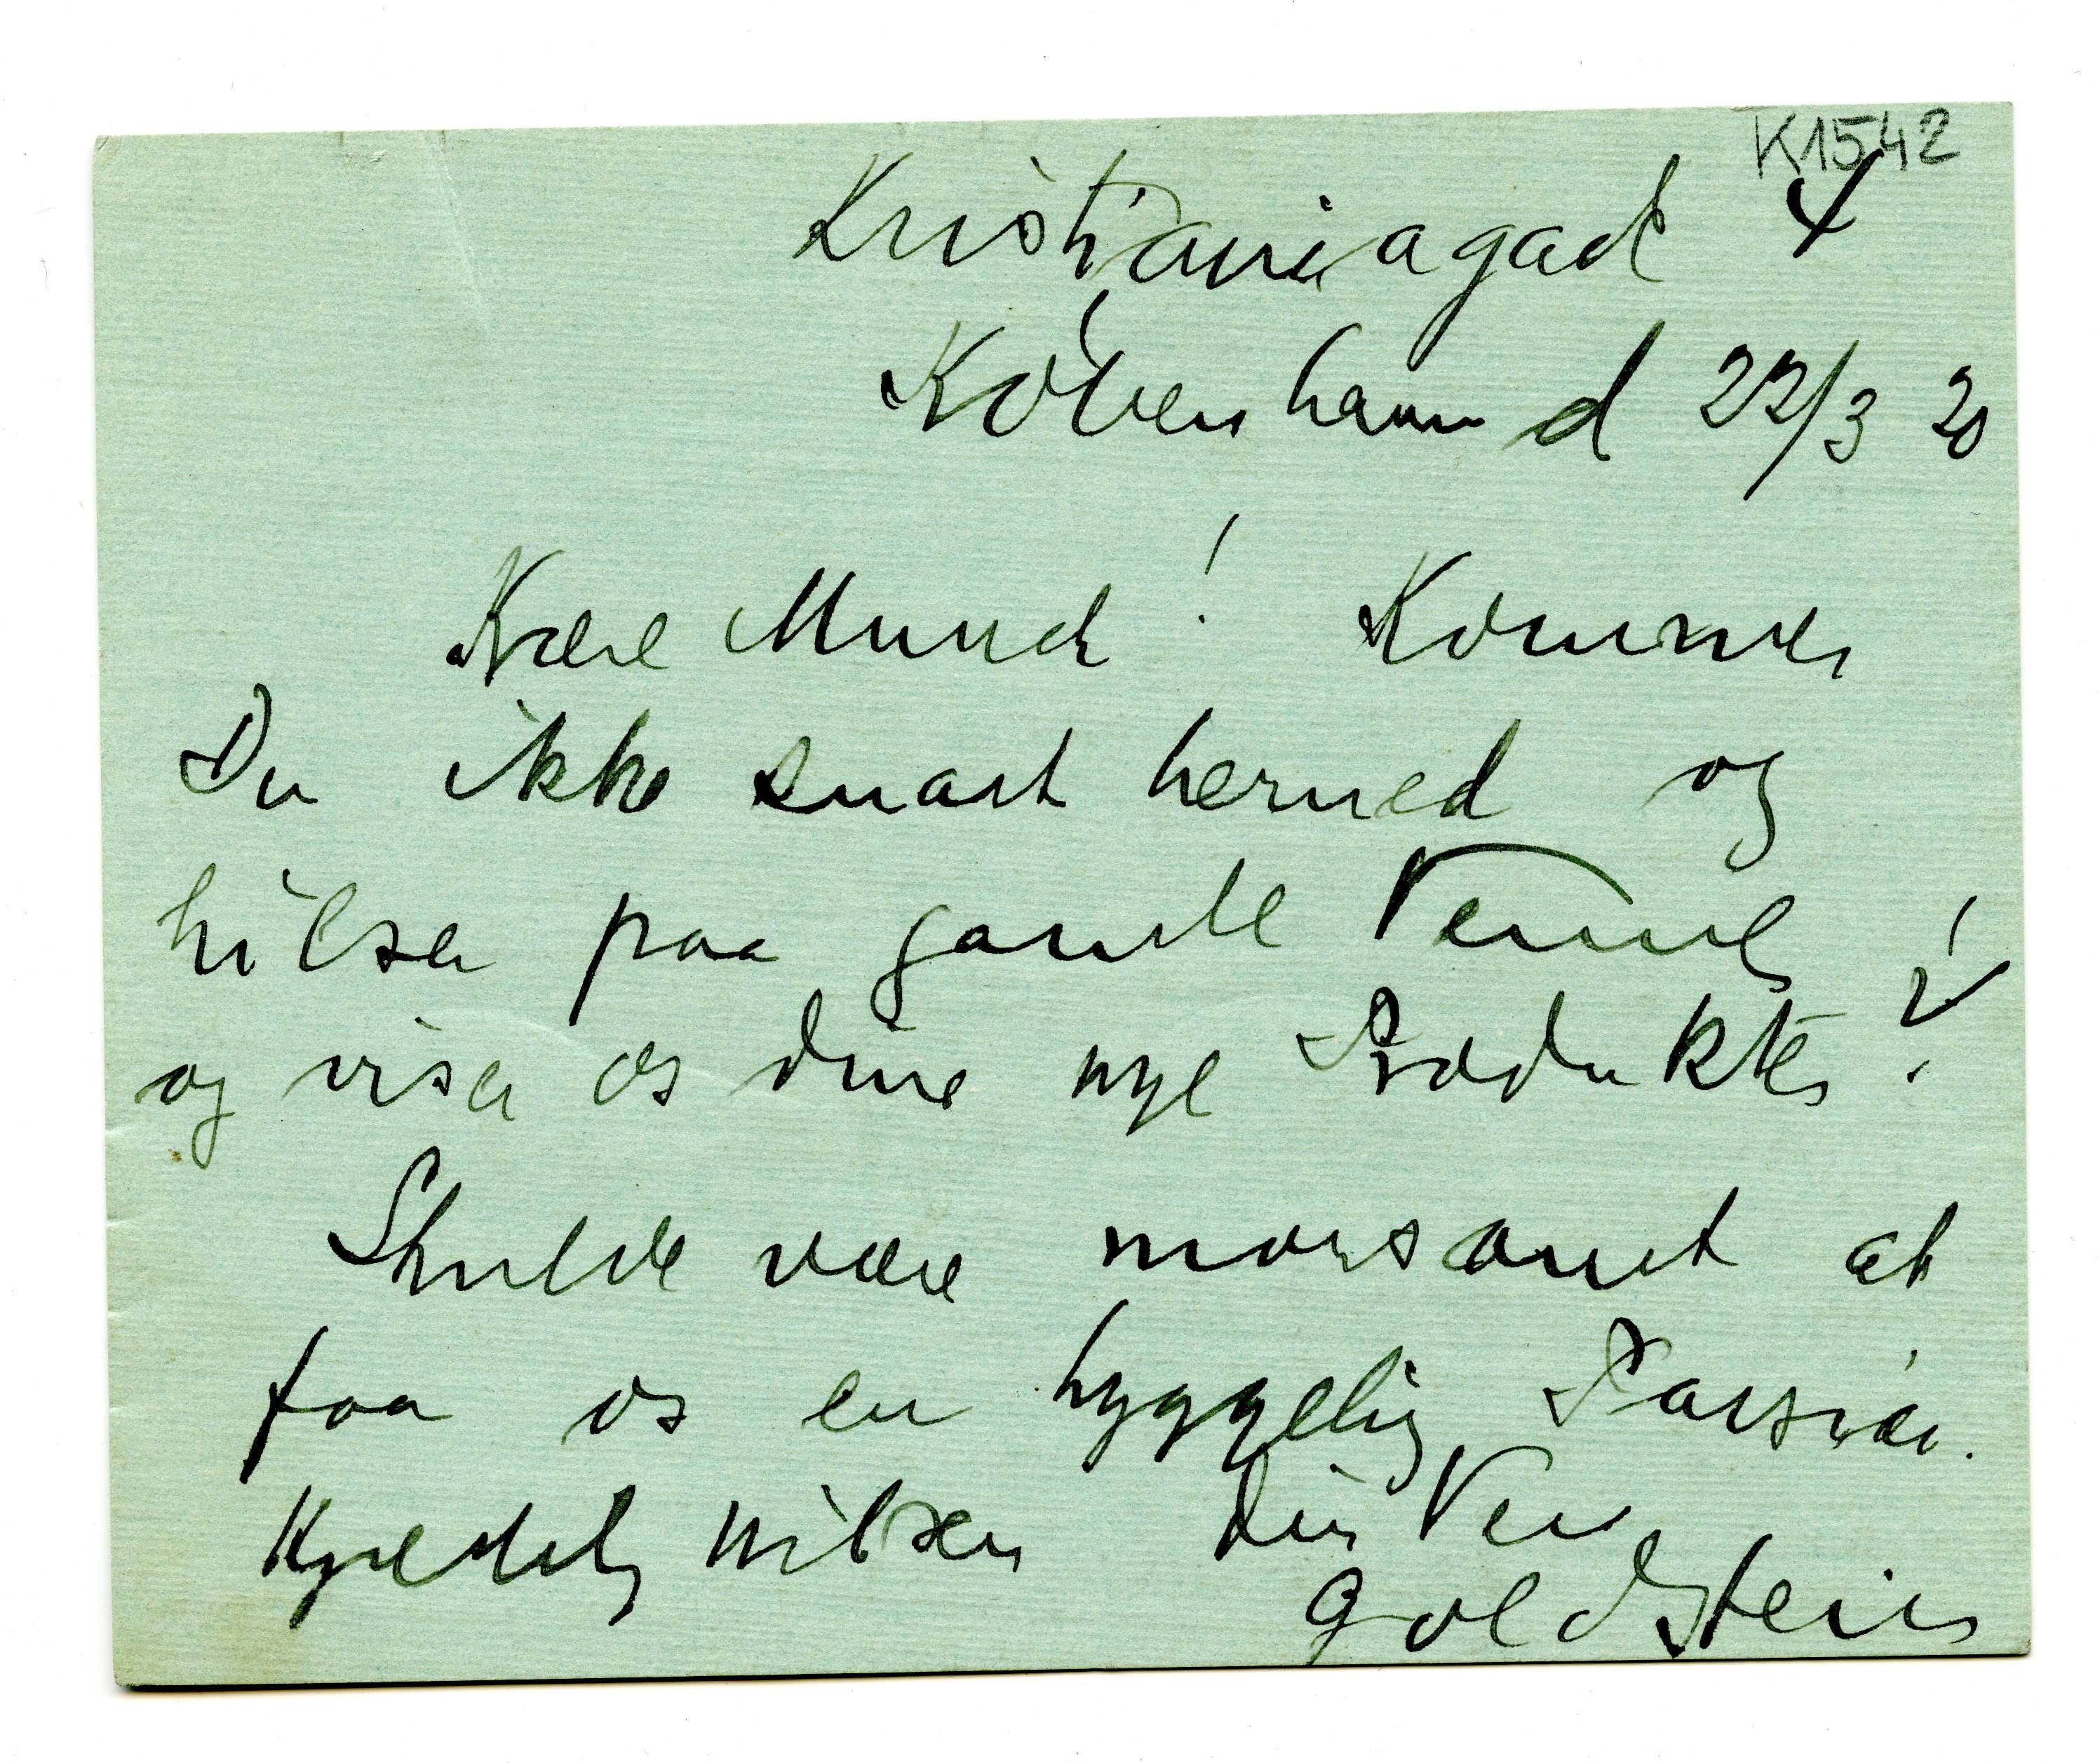 K1542
Kristianiagade 4
København d 22/3 20
Kære Munch! Kommer
Du ikke snart herned og
hilser paa gamle Venner
og viser os dine nye Produkter?!
Skulde være morsomt at
faa os en hyggelig Passiar.
Kjærlig Hilsen Din Ven
Goldstein